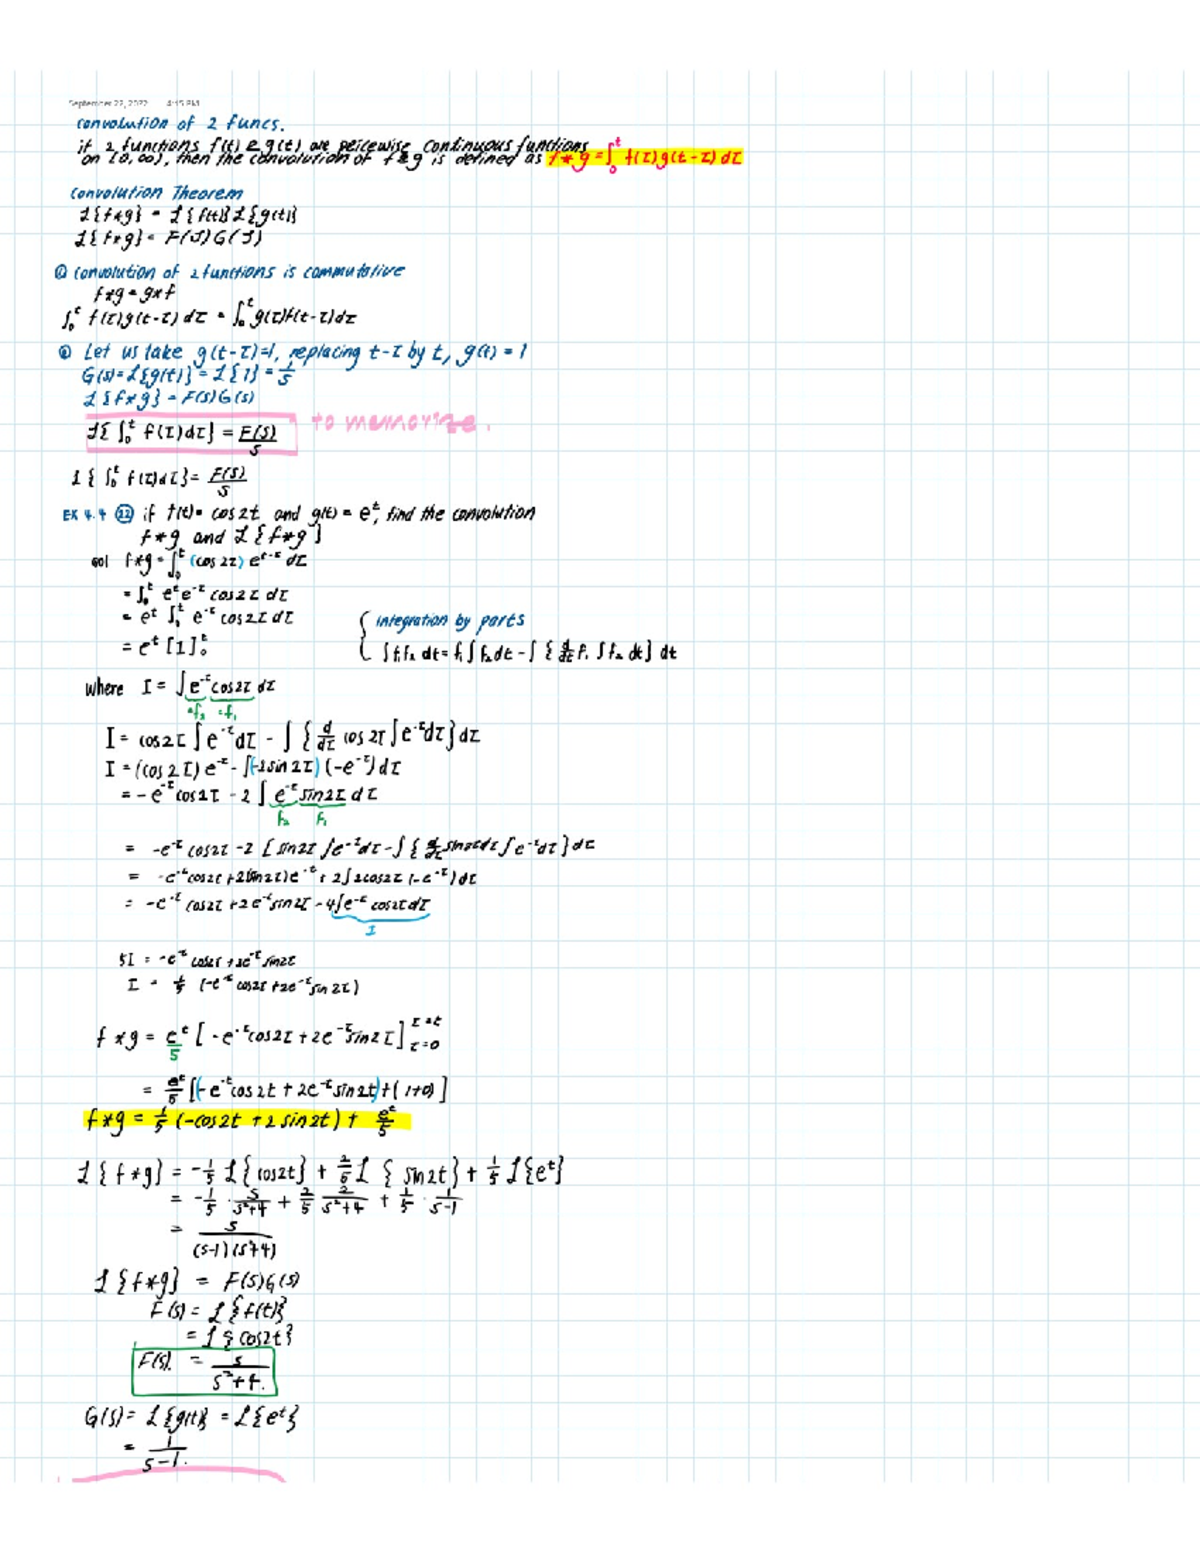 September 22, 2022 4:15 PM
convolution of 2 funcs.
if 2 functions f(t) & g(t) are peicewise continuous functions
on [0, ∞), then the convolution of f & g is defined as f * g = ∫₀ᵗ f(τ)g(t-τ) dτ
Convolution Theorem
ℒ{f*g} = ℒ{f(t)}ℒ{g(t)}
ℒ{f*g} = F(s)G(s)
① convolution of 2 functions is commutative
f*g = g*f
∫₀ᵗ f(τ)g(t-τ) dτ = ∫₀ᵗ g(τ)f(t-τ)dτ
② Let us take g(t-τ)=1, replacing t-τ by t, g(t) = 1
G(s) = ℒ{g(t)} = ℒ{1} = 1/s
ℒ{f*g} = F(s)G(s)
ℒ{∫₀ᵗ f(τ)dτ} = F(s)/s to memorize.
ℒ{∫₀ᵗ f(τ)dτ} = F(s)/s
EX 4.4 ㉒ if f(t) = cos2t and g(t) = eᵗ, find the convolution
f*g and ℒ{f*g}
sol f*g = ∫₀ᵗ (cos 2τ) e^(t-τ) dτ
= ∫₀ᵗ eᵗe^-τ cos2τ dτ
= eᵗ ∫₀ᵗ e^-τ cos2τ dτ
= eᵗ [I]₀ᵗ
{ integration by parts
∫f₁f₂ dt = f₁∫f₂dt - ∫{d/dt f₁ ∫f₂ dt} dt
where I = ∫e^-τ cos2τ dτ
=f₂ =f₁
I = cos2τ ∫e^-τ dτ - ∫{d/dτ cos 2τ ∫e^-τ dτ} dτ
I = (cos2τ) e^-τ - ∫(-2sin2τ) (-e^-τ) dτ
= -e^-τ cos2τ - 2∫e^-τ sin2τ dτ
f₂ f₁
= -e^-τ cos2τ - 2 [sin2τ ∫e^-τ dτ - ∫{d/dτ sin2τdτ ∫e^-τ dτ} dτ
= -e^-τ cos2τ + 2(sin2τ)e^-τ + 2∫2cos2τ (-e^-τ) dτ
= -e^-τ cos2τ + 2e^-τ sin2τ - 4∫e^-τ cos2τdτ
I
5I = -e^-τ cos2τ + 2e^-τ sin2τ
I = 1/5 (-e^-τ cos2τ + 2e^-τ sin2τ)
f*g = eᵗ/5 [-e^-τ cos2τ + 2e^-τ sin2τ] τ=t τ=0
= eᵗ/5 [(-e^-t cos2t + 2e^-t sin2t) + (1+0)]
f*g = 1/5 (-cos2t + 2 sin2t) + eᵗ/5
ℒ{f*g} = -1/5 ℒ{cos2t} + 2/5 ℒ{sin2t} + 1/5 ℒ{eᵗ}
= -1/5 · s/(s²+4) + 2/5 2/(s²+4) + 1/5 · 1/(s-1)
= s/((s-1)(s²+4))
ℒ{f*g} = F(s)G(s)
F(s) = ℒ{f(t)}
= ℒ{cos2t}
F(s). = s/(s²+4.)
G(s) = ℒ{g(t)} = ℒ{eᵗ}
= 1/(s-1.)